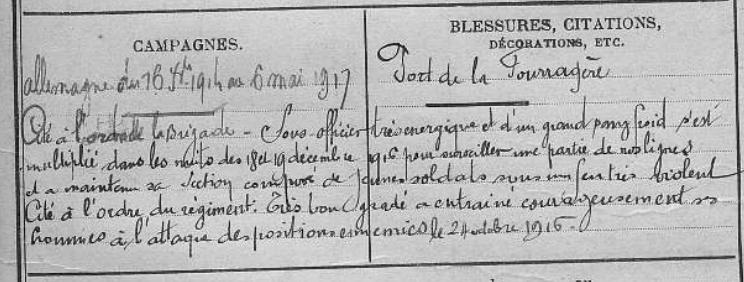 CAMPAGNES.
BLESSURES, CITATIONS,
DÉCORATIONS, ETC.
allemagne du 16 Sbre 1914 au 6 mai 1917
Port de la Fourragère
Cité à l'ordre de la Brigade - Sous-officier très energique et d'un grand sang froid s'est
multiplié dans les nuits des 18 et 19 décembre 1916 pour surveiller une partie de nos lignes
et a maintenu sa Section composé de jeunes soldats sous un feu très violent
Cité à l'ordre du régiment. Très bon gradé a entrainé courageusement ses
hommes à l'attaque des positions ennemies le 24 octobre 1916.